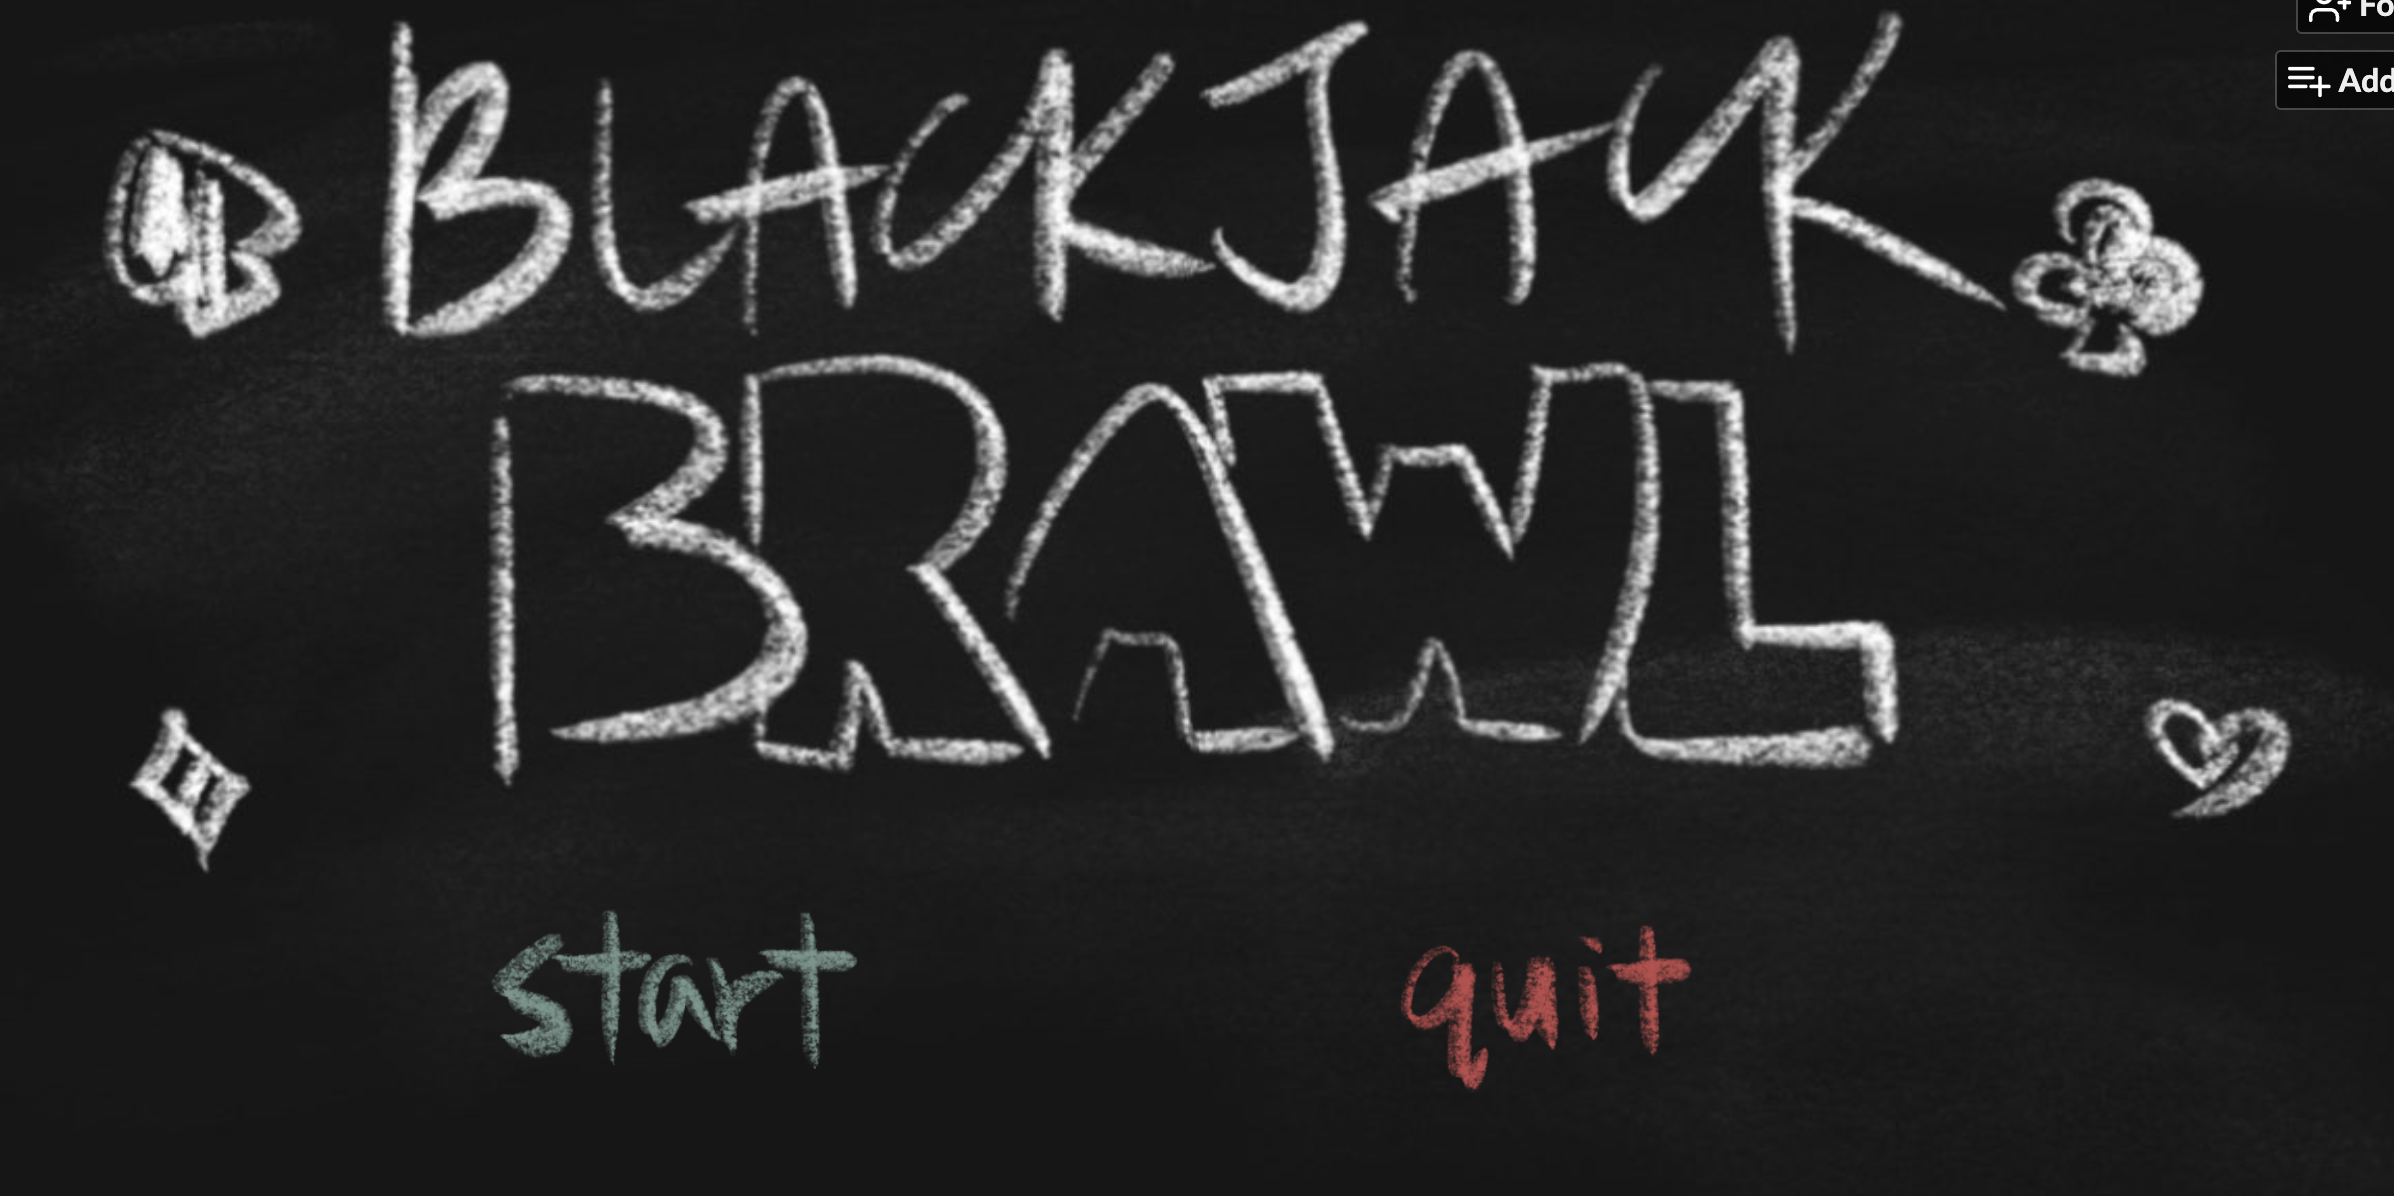 Fo
Add
BLACKJACK
BRAWL
start
quit